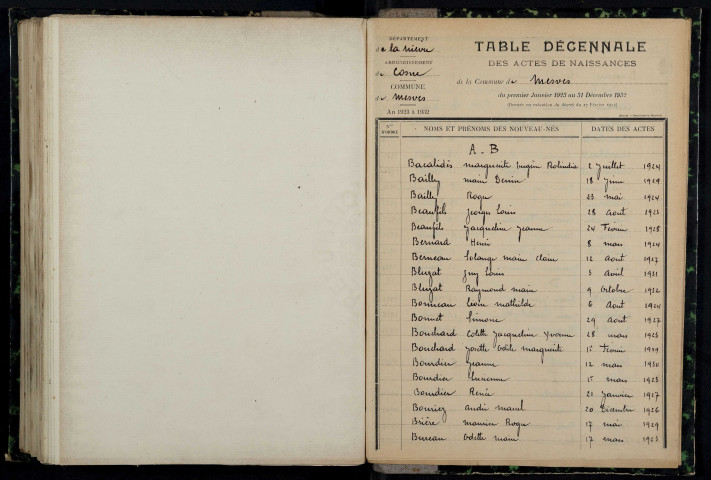 DÉPARTEMENT
de la Nièvre
ARRONDISSEMENT
de Cosne
COMMUNE
de Mesves
An 1923 à 1932
TABLE DÉCENNALE
DES ACTES DE NAISSANCES
de la Commune de Mesves
du premier Janvier 1923 au 31 Décembre 1932
(Dressée en exécution du décret du
Nos D'ORDRE NOMS ET PRÉNOMS DES NOUVEAU-NÉS DATES DES ACTES
A - B
Bacalidès marguerite 2 Juillet 1924
Bailly Denise 18 Juin 1929
Bailly Roger 23 mai 1924
Beaufils Georges Louis 28 Aout 1923
Beaufils Jacqueline Jeanne 24 Février 1928
Bernard Henri 8 mars 1924
Berneau Solange marie Claire 12 Aout 1927
Bluzat Guy Louis 5 Avril 1931
Bluzat Raymond 9 Octobre 1932
Bonneau mathilde 6 Aout 1924
Bonnet Simone 29 Aout 1927
Bouchard Colette Jacqueline Yvonne 28 mars 1923
Bouchard Josette Odile marguerite 1er Février 1929
Bourdier Jeanne 12 mars 1930
Bourdier Lucienne 1er mars 1923
Bourdier Renée 21 Janvier 1927
Bourriez André marcel 20 Décembre 1926
Brière maurice Roger 17 mai 1929
Bureau Odette marie 17 mars 1923